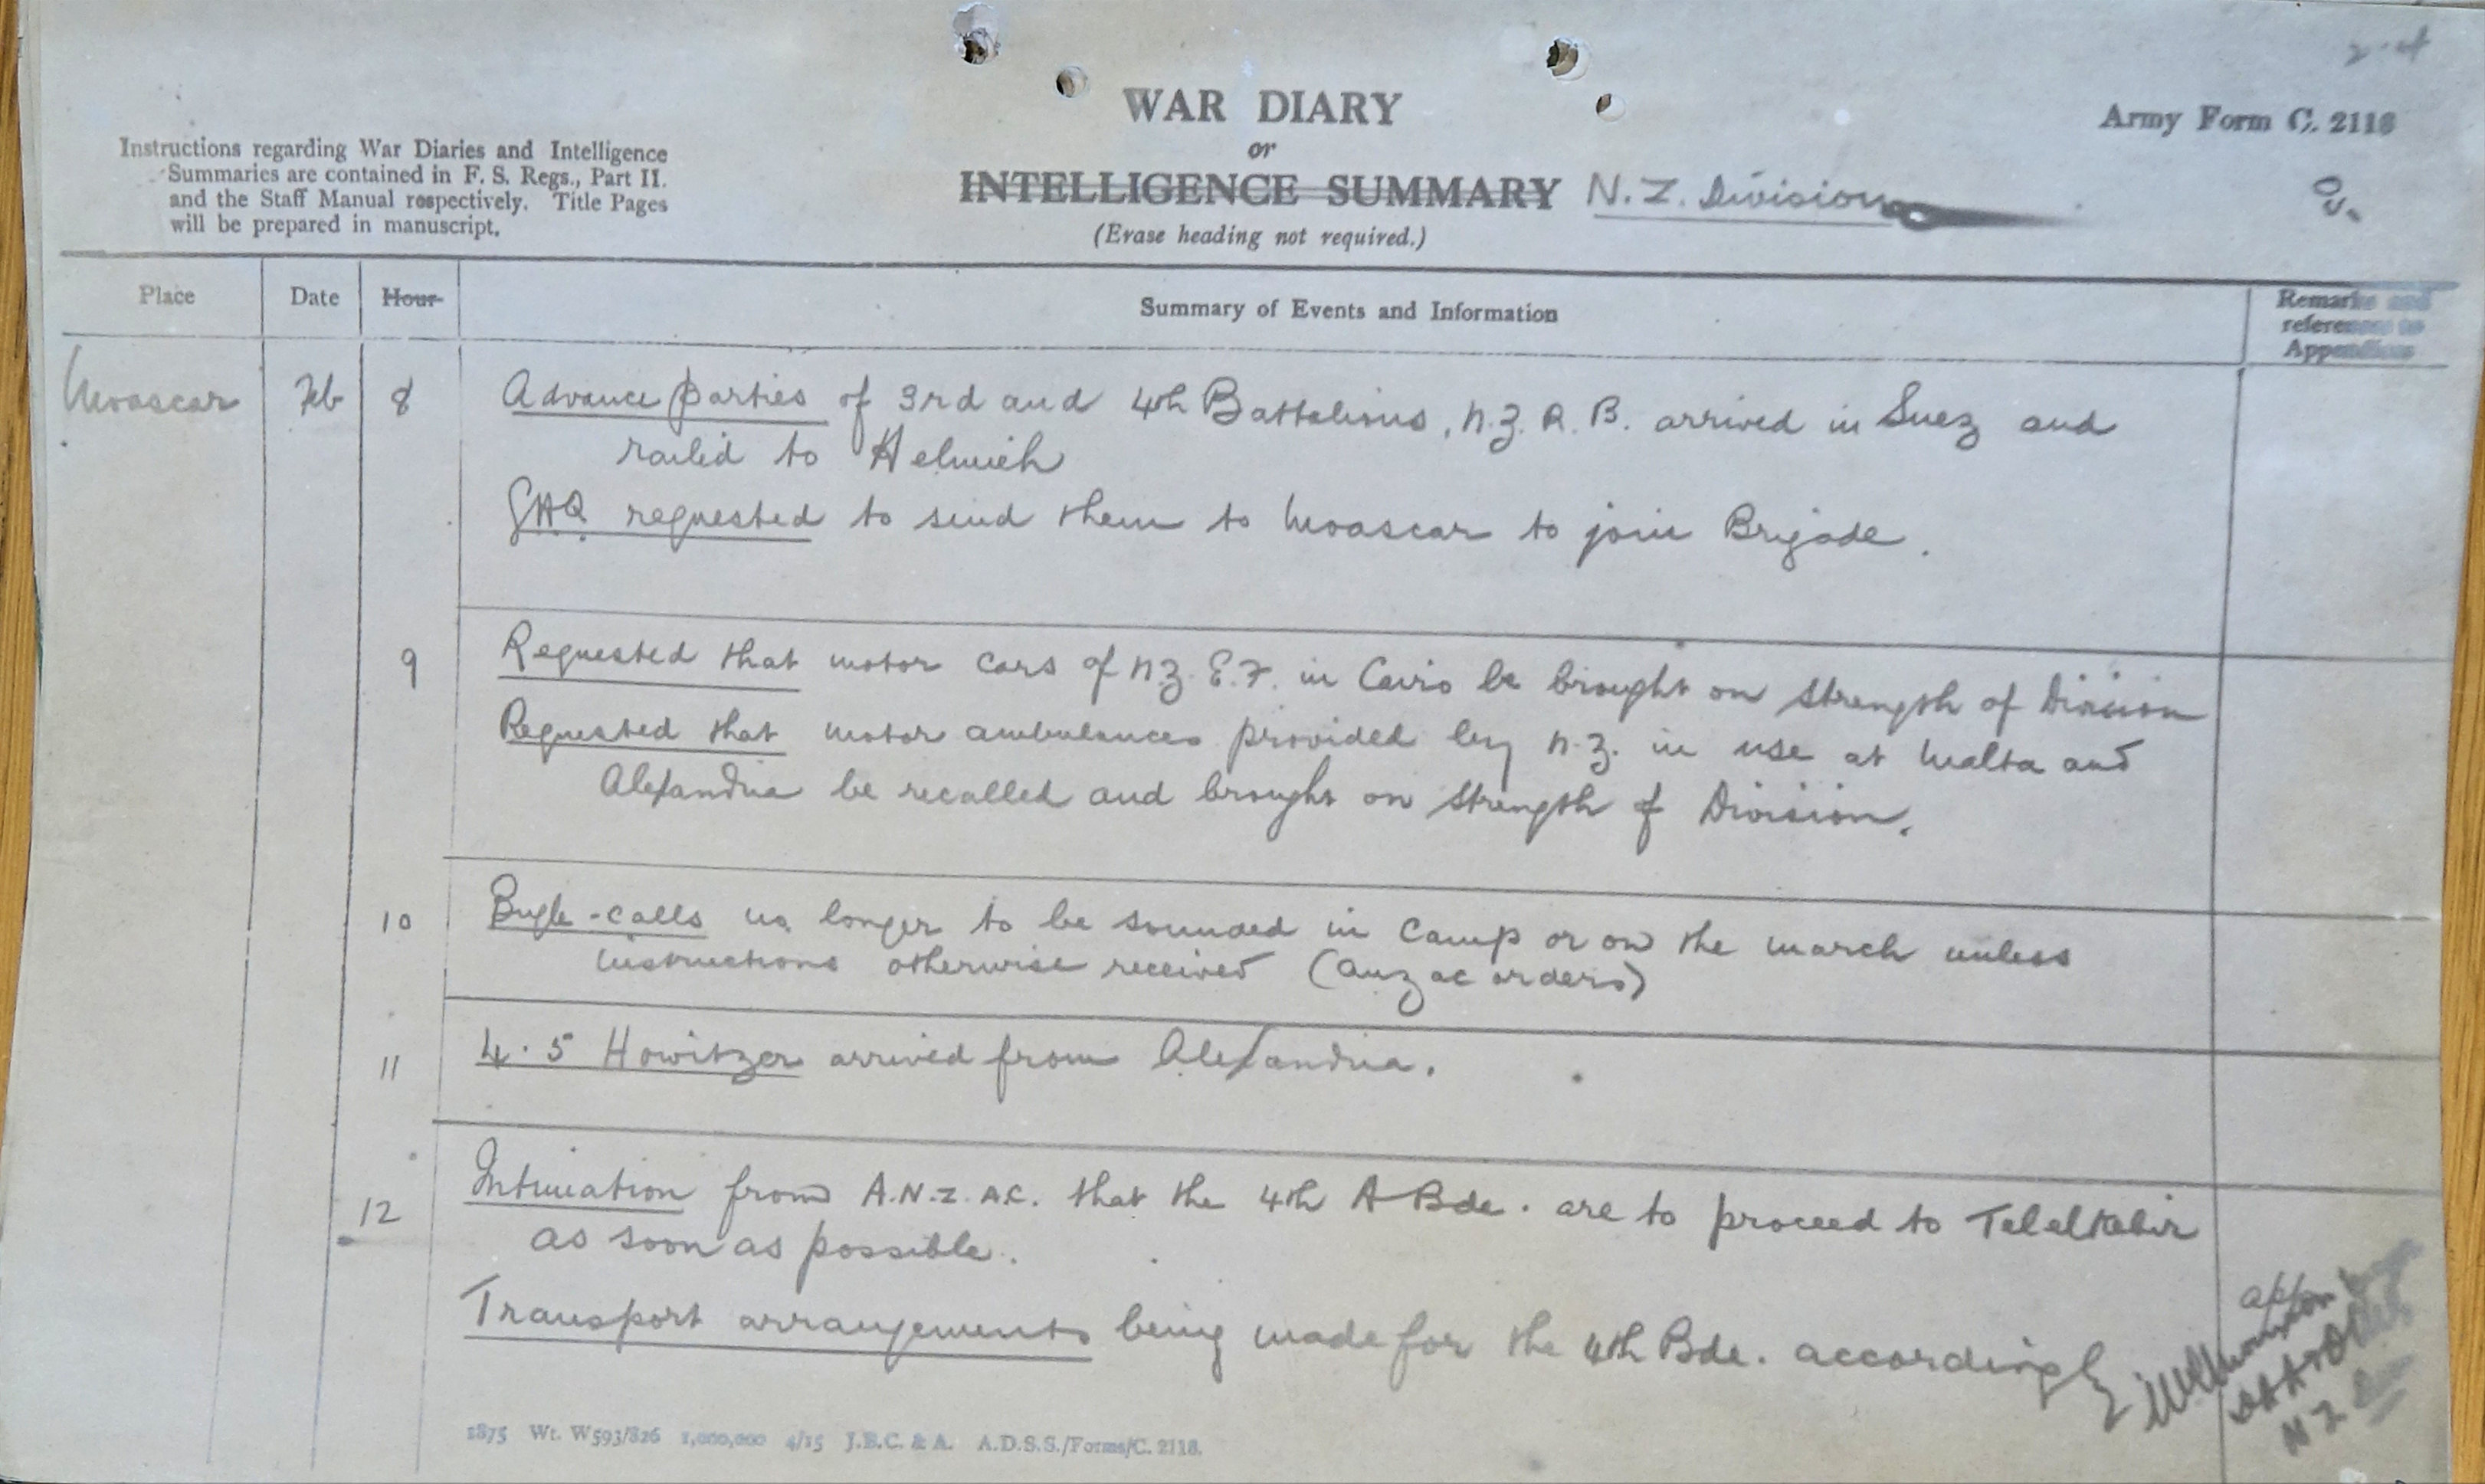 Army Form C. 2118
WAR DIARY
or
INTELLIGENCE SUMMARY N.Z. Division
(Erase heading not required.)
Instructions regarding War Diaries and Intelligence
Summaries are contained in F. S. Regs., Part II.
and the Staff Manual respectively. Title Pages
will be prepared in manuscript.
Place Date Hour Summary of Events and Information Remarks and
references to
Appendices
Moascar Feb 8 Advance parties of 3rd and 4th Battalions, N.Z.R.B. arrived in Suez and
railed to
GHQ requested to send them to Moascar to join Brigade.
9 Requested that motor cars of N.Z.E.F. in Cairo be brought on strength of Division
Requested that motor ambulances provided by N.Z. in use at Malta and
Alexandria be recalled and brought on strength of Division.
10 Bugle-calls no longer to be sounded in camp or on the march unless
instructions otherwise received (Anzac orders)
11 4.5 Howitzer arrived from Alexandria.
12 Intimation from A.N.Z.A.C. that the 4th A Bde. are to proceed to Telelkebir
as soon as possible.
Transport arrangements being made for the 4th Bde. accordingly
N Z
1875 Wt. W593/826 1,000,000 4/15 J.B.C. & A. A.D.S.S./Forms/C. 2118.